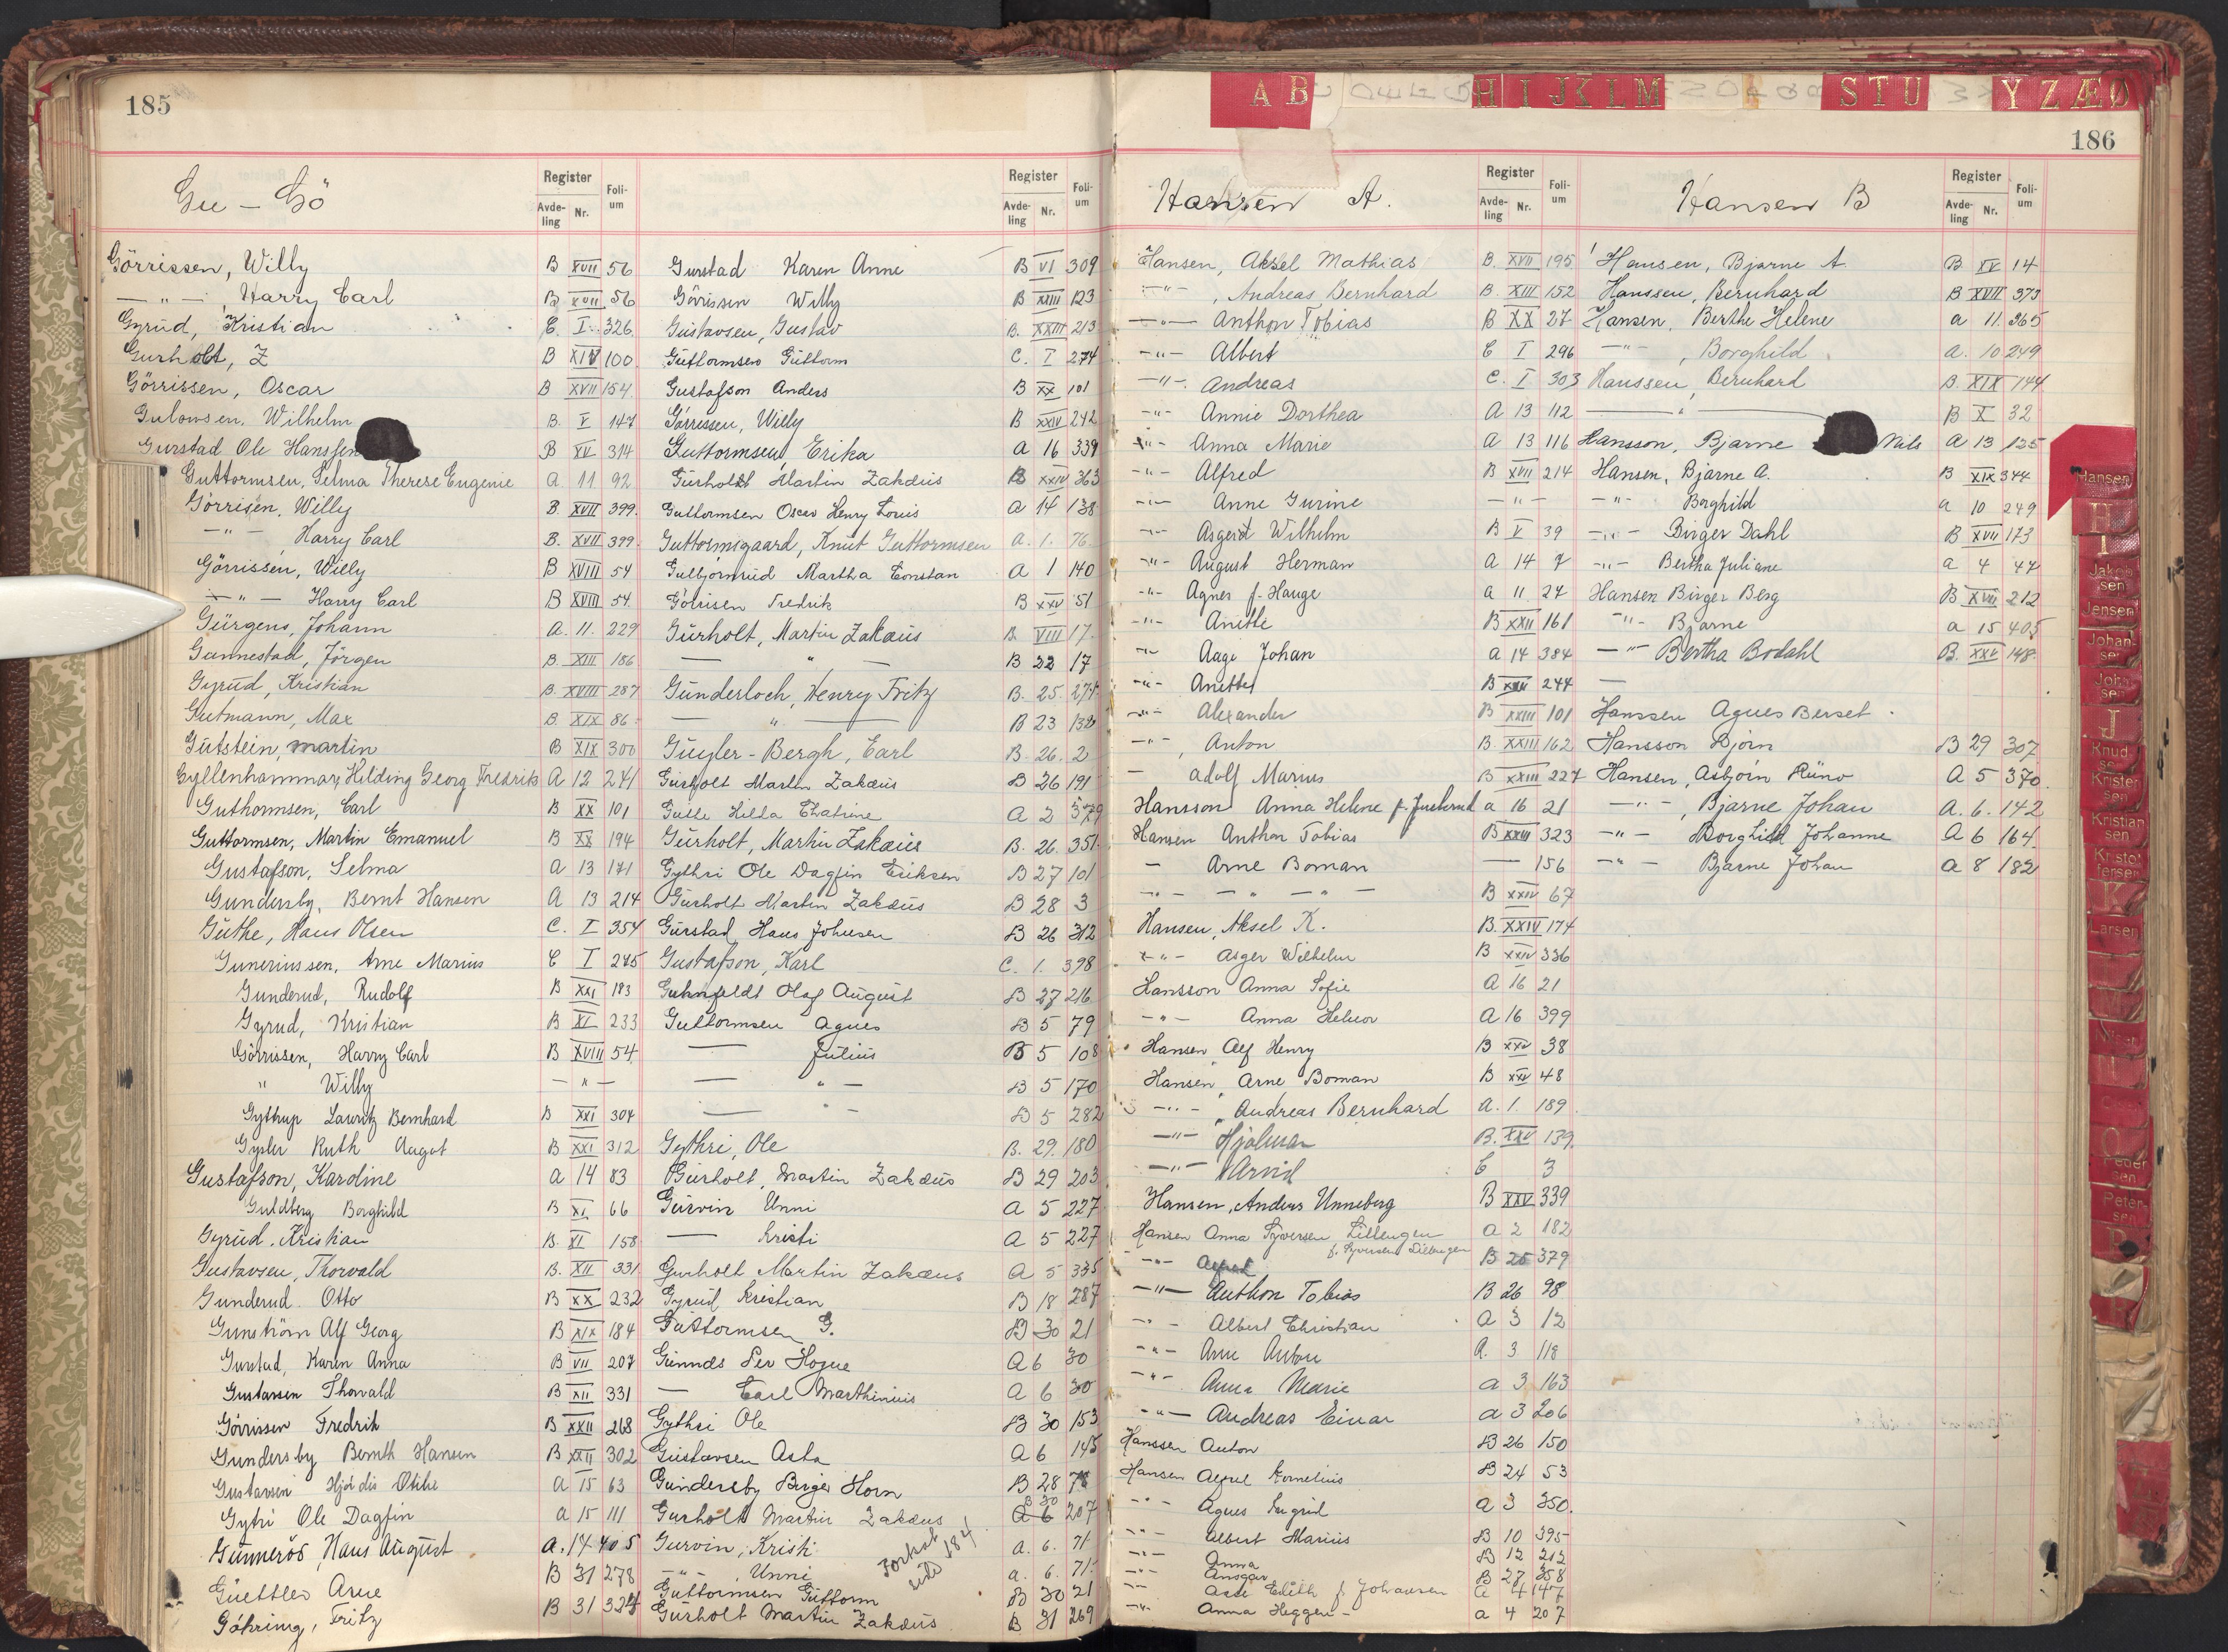 185
Gu – Gö
Register
Avde-ling Nr.
Foli-um
Görrissen, Willy B XVII 56
— " — Harry Carl B XVII 56
Gyrud, Kristian C. I 326
Gurholt, Z B XIV 100
Görrissen, Oscar B XVII 154
Gulowsen, Wilhelm B. V 147
Gurstad Ole Hanssen B XV 314
Guttormsen, Selma Therese Eugenie A 11 92
Görrisen, Willy B XVII 399
— " — Harry Carl B. XVII 399
Görrissen, Willy B XVIII 54
— " — Harry Carl B XVIII 54
Gürgens, Johann A. 11. 229
Gunnestad, Jörgen B. XIII 186
Gyrud, Kristian B. XVIII 287
Gutmann, Max B. XIX 86
Gutstein, martin B XIX 300
Gyllenhammar, Hilding Georg Fredrik A 12 241
Guthormsen, Carl B XX 101
Guttormsen, Martin Emanuel B XX 194
Gustafson, Selma A 13 171
Gundersby, Bernt Hansen A 13 214
Guthe, Hans Olsen C. I 354
Gunerinssen, Arne Marius C I 275
Gunderud, Rudolf B XXI 183
Gyrud, Kristian B XI 233
Görrissen, Harry Carl B XVIII 54
" Willy — " —
Gyttrup Lauritz Bernhard B XXI 304
Gysler Ruth Aagot B XXI 312
Gustafson, Kardine A 14 83
Guldberg Borghild B XI 66
Gyrud, Kristian B. XI 158
Gustavsen, Thorvald B. XII 331
Gunderud Otto B XX 232
Gunström Alf Georg B XIX 184
Gurstad, Karen Anna B VII 207
Gustavsen Thorvald B XII 331
Görrissen Fredrik B XXII 268
Gundersby Bernth Hansen B XXII 302
Gustavsen Hjördis Otilie A 15 63
Gytri Ole Dagfin A 15 111
Gunneröd, Hans August A. 14 405
Guettler Arne B 31 278
Göhring, Fritz B 31 324
Register
Avde-ling Nr.
Foli-um
Gurstad Karen Anne B VI 309
Görrissen Willy B XXIII 123
Gustavsen, Gustav B. XXIII 213
Guttormsen Guttorm C. I 274
Gustafson Anders B XX 101
Görrissen, Willy B XXIV 242
Guttormsen, Erika A 16 339
Gurholt Martin Zakæus B XXIV 363
Guttormsen Oscar Henry Louis A 14 138
Guttormsgaard, Knut Guttormsen A. 1. 76
Gulbjörnrud Martha Constan A 1 140
Görrisen Fredrik B XXV 51
Gurholt, Martin Zakæus B. VIII 17.
— " — B 22 17
Günderloch, Henry Fritz B. 25. 274
— " — B 23 132
Guyler-Bergh, Carl B. 26. 2
Gurholt Martin Zakæus B 26 191
Gulle Hilda Chatrine A 2 379
Gurholt, Martin Zakæus B. 26. 351
Gythri Ole Dagfin Eriksen B 27 101
Gurholt Martin Zakæus B 28 3
Gurstad Hans Johnsen B 26 312
Gustafson, Karl C. 1. 398
Guhnfeldt Olaf August B 27 216
Guttormsen Agnes B 5 79
— Julius B 5 108
— " — B 5 170
— " — B 5 282
Gythri, Ole B. 29. 180
Gurholt, Martin Zakæus B 29 203
Gurvin Unni A 5 227
— Kristi A 5 227
Gurholt Martin Zakæus A 5 335
Gyrud Kristian B 18 287
Guttormsen G. B 30 21
Gunnæs Per Hogne A 6 30
— Carl Marthinius A 6 30
Gythri Ole B 30 153
Gustavsen Asta A 6 145
Gundersby Birger Horn B 28 78
Gurholt Martin Zakæus B 30 A 6 207
Gurvin, Kristi A. 6. 71
— " — Unni A. 6. 71
Guttormsen Guttorm B 30 21
Gurholt Martin Zakæus B 31 269
Fortsat side 184
A B H I J K L M S T U Y Z Æ Ø
186
Hansen A.
Register
Avde-ling Nr.
Foli-um
Hansen, Aksel Mathias B. XVII 195
— " — , Andreas Bernhard B. XIII 152
— " — Anthon Tobias B XX 27
— " — Albert C I 296
— " — Andreas C. I 303
— " — Annie Dorthea A 13 112
— " — Anna Marie A 13 116
— " — Alfred B XVII 214
— " — Anne Gurine — " —
— " — Asgeid Wilhelm B V 39
— " — August Herman A 14 7
— " — Agnes f. Hauge A 11 24
— " — Anitte B XXII 161
— " — Aage Johan A 14 384
— " — Anitte B XVII 244
— " — Alexander B XXIII 101
— " — , Anton B. XXIII 162
— Adolf Marius B XXIII 227
Hansson Anna Helene f. A 16 21
Hansen Anthon Tobias B XXIII 323
— Arne Boman — 156
— " — " — " — B XXIV 67
Hansen, Aksel K. B. XXIV 174
— " — Asger Wilhelm B XXIV 336
Hansson Anna Sofie A 16 21
— " — Anna Helene A 16 399
Hansen, Alf Henry B XXV 38
Hansen, Arne Boman B XXV 48
— " — , Andreas Bernhard A. 1. 189
— " — Hjalmar B. XXV 139
— " — Arvid C 3
Hansen, Anders Unneberg B XXV 339
Hansen Anna Syversen Lillengen A 2 182
f. Syversen Lillengen
— " — Alfred B 25 379
— " — Anthon Tobias B 26 98
— " — Albert Christian A 3 12
— " — Arne Anton A. 3 118
— " — Anna Marie A 3 163
— " — Andreas Einar A 3 206
Hanssen Anton B 26 150
Hansen Alfred Kornelius B 24 53
— " — Agnes Ingrid A 3 350.
— " — Albert Marius B 10 395
— " — Anna B 12 212
— " — Ansgar B 27 358
— " — Aase Edith f. Johansen A 4 147
— " — Anna Heggen A 4 207
Hansen B
Register
Avde-ling Nr.
Foli-um
Hansen, Bjarne A. B IV 14
Hanssen, Bernhard B XVII 373
Hansen, Berthe Helene A 11. 365
— " — , Borghild A. 10 249
Hanssen, Bernhard B. XIX 144
— " — B X 32
Hansson, Bjarne Nils A 13 125
Hansen, Bjarne A. B XIX 344
— " — Borghild A 10 249
— " — Birger Dahl B XVII 173
— " — Bertha Juliane A 4 44
Hansen Birger Berg B XVIII 212
— " — Bjarne A 15 405
— " — Bertha Bodahl B. XXV 148
—
Hanssen Agnes Berset
Hansson Bjørn B 29 307
Hansen, Asbjørn Runo A 5 370
— " — , Bjarne Johan A. 6. 142
— " — Borghild Johanne A 6 164.
— " — Bjarne Johan A 8 182
Hansen
H
I
Jakob sen
Jensen
Johan-se
Joh sen
J
Knud se
Krister sen
Kristian sen
Kristof fersen
K
Larsen
Peder sen
Peter-sen